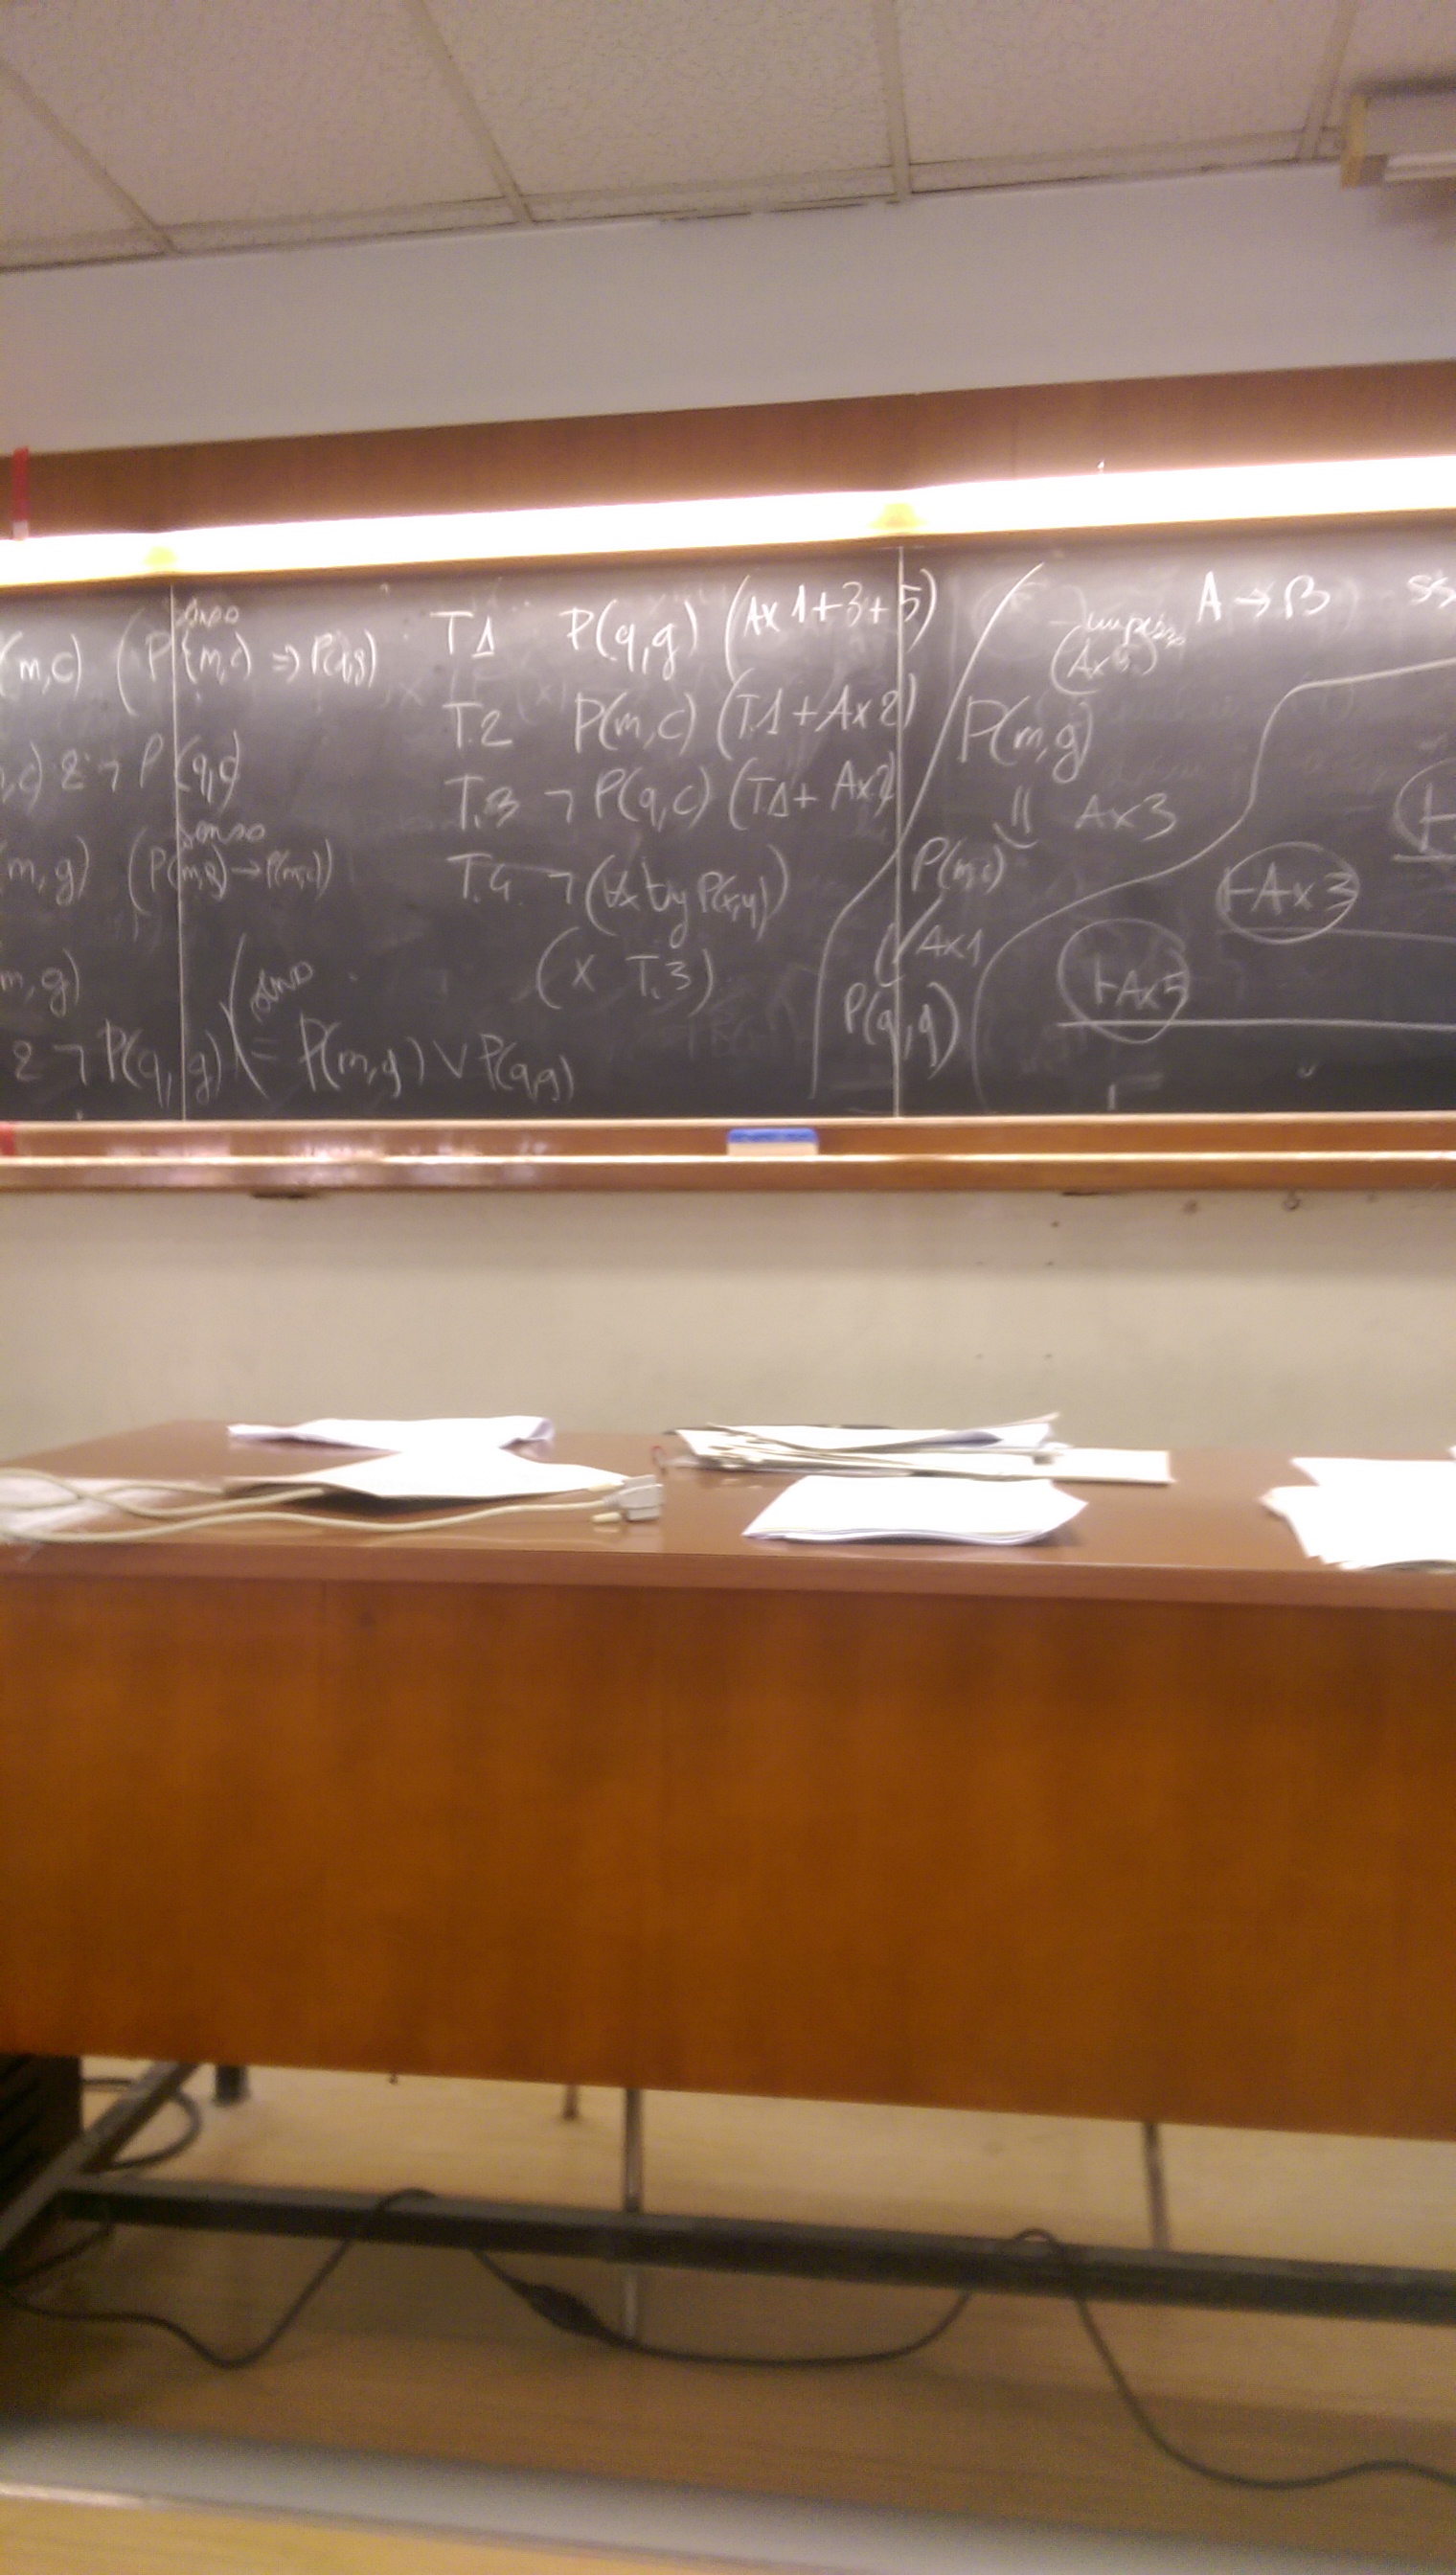 (m,c) (P(m,c) ⇒ P(q,g))
,c) & ¬P(q,c)
senso
m,g) (P(m,g) → P(m,c))
m,g)
& ¬P(q,g) (= P(m,g) ∨ P(q,g)
T1 P(q,g) (Ax 1+3+5)
T.2 P(m,c) (T.1 + Ax 2)
T.3 ¬P(q,c) (T1 + Ax 2)
T.4 ¬(∀x ∀y P(x,y))
(x T.3)
A → B ss
(Ax5)
P(m,g)
⇓ Ax 3
P(m,c)
Ax1
P(q,g)
+Ax3
+Ax5